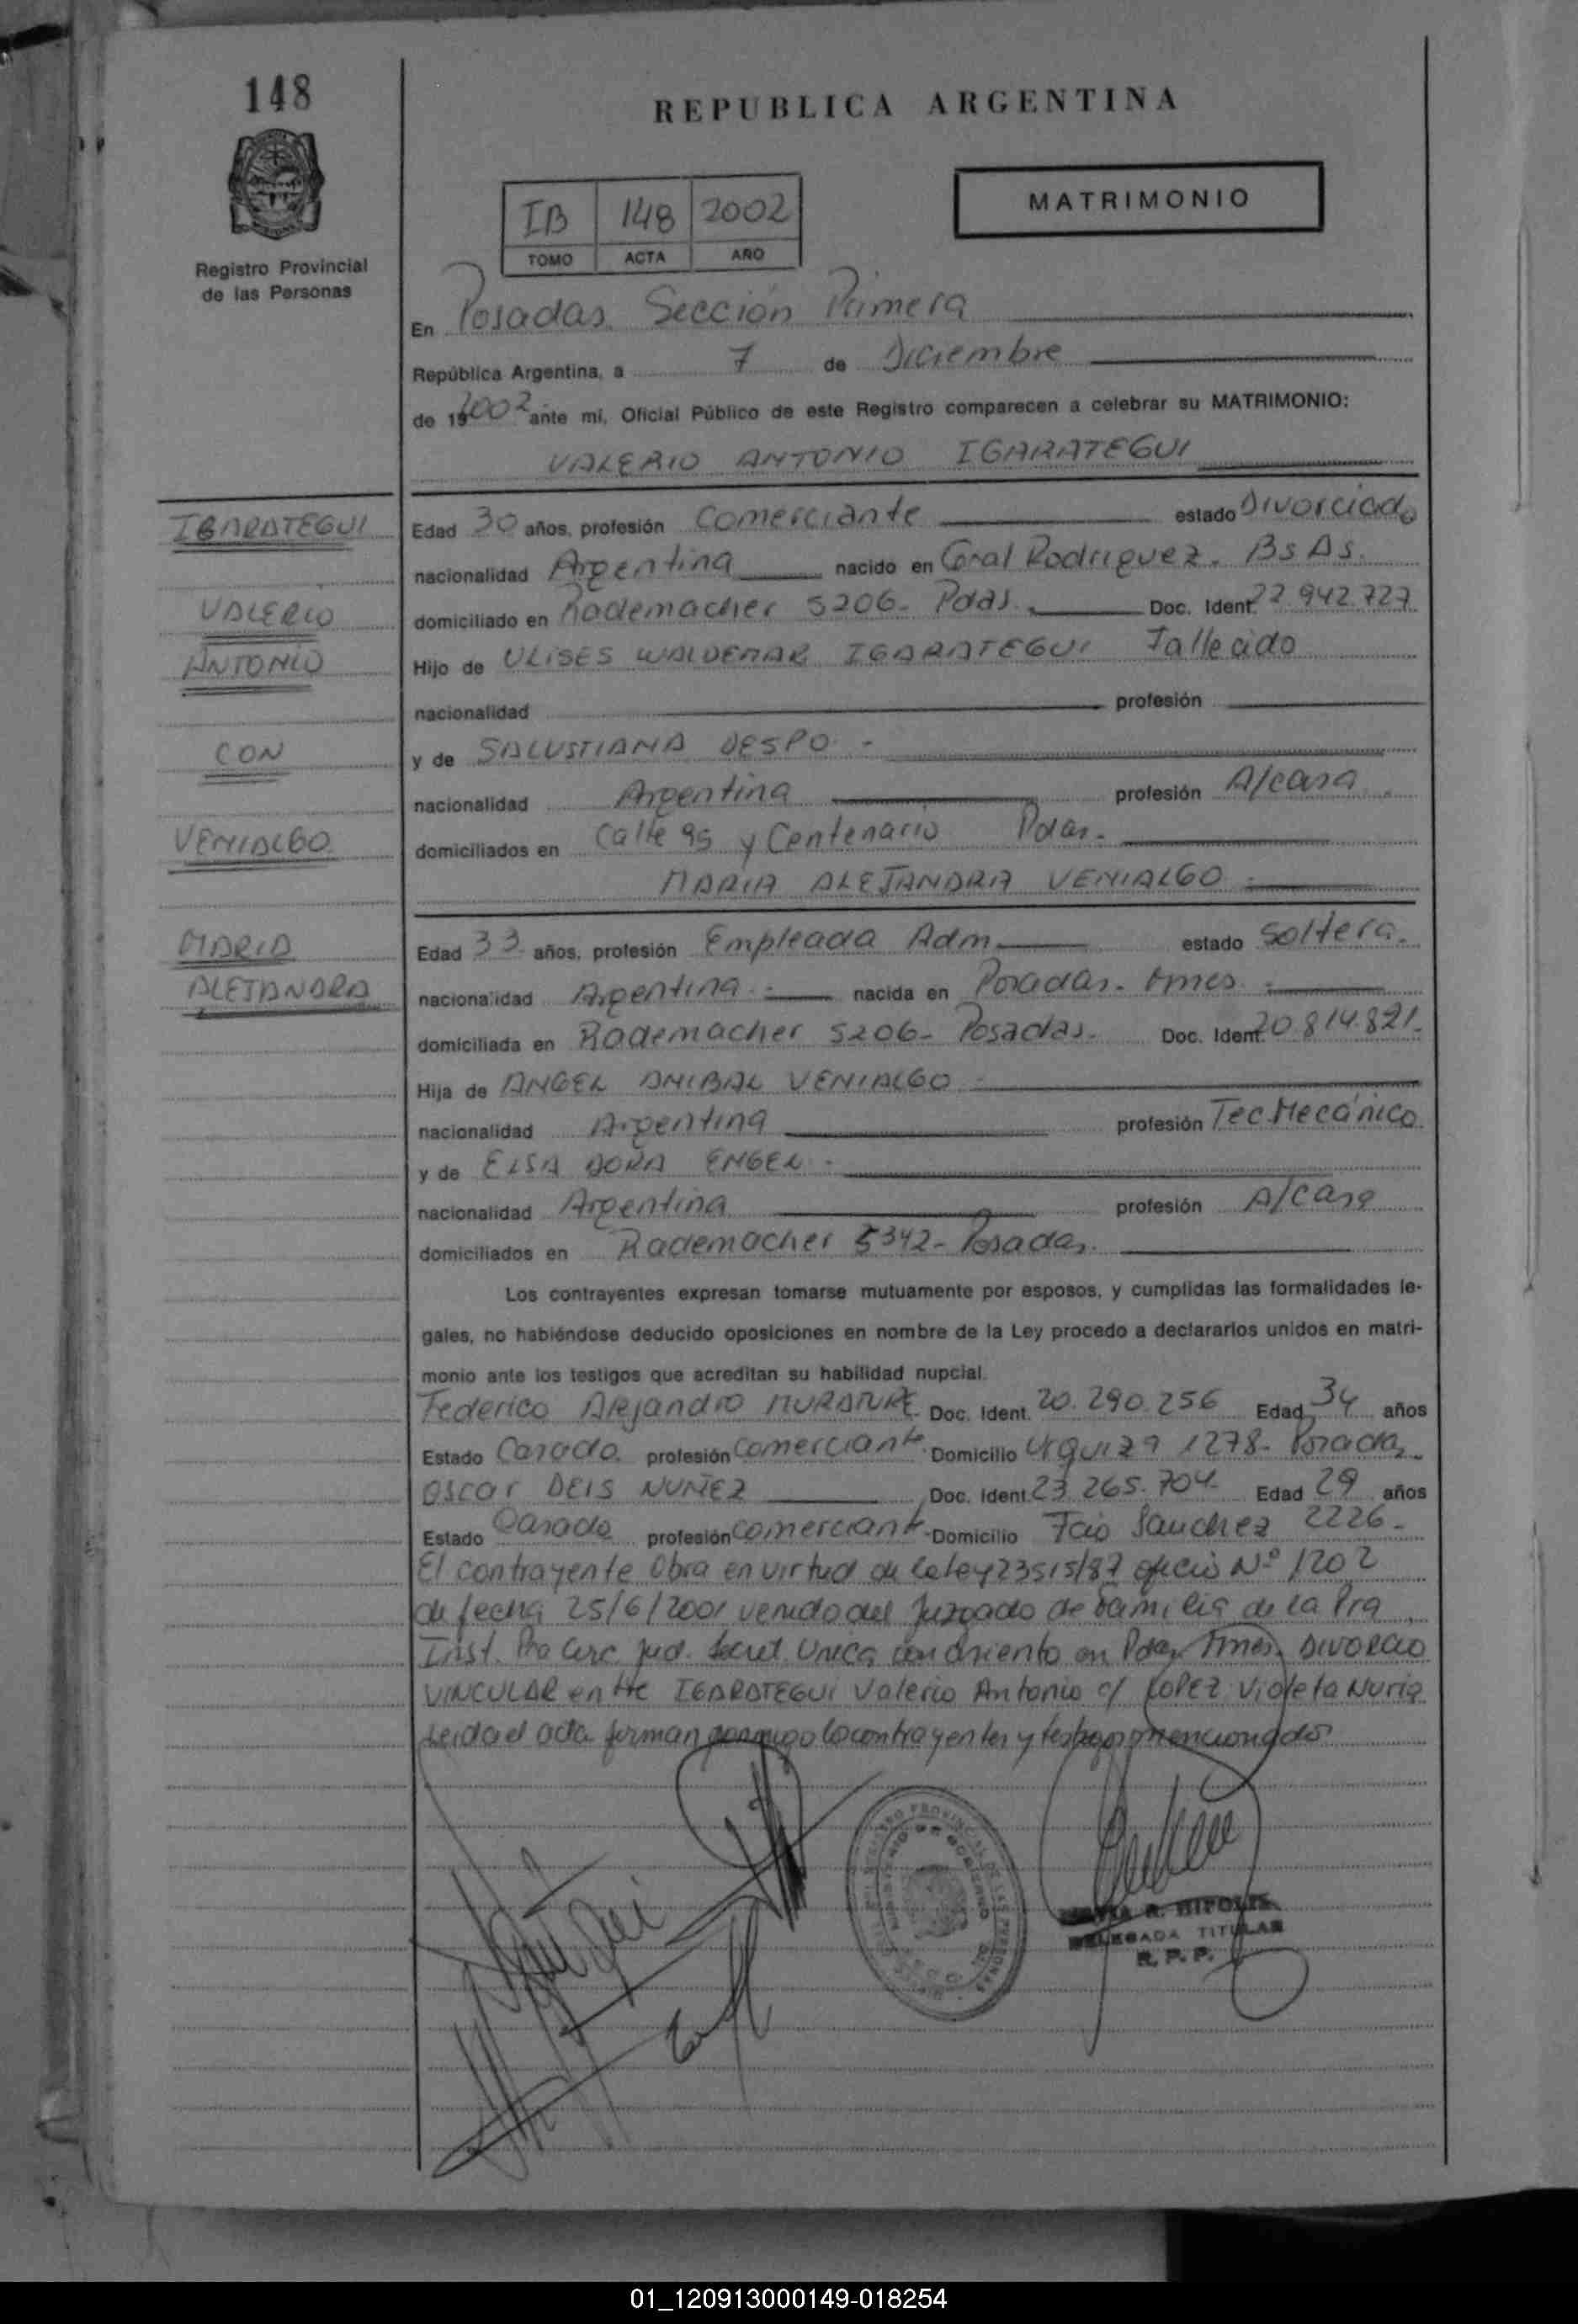 148
REPUBLICA ARGENTINA
MATRIMONIO
IB 148 2002
TOMO ACTA AÑO
Registro Provincial
de las Personas
En Posadas Sección Primera
República Argentina, a 7 de Diciembre
de 192002 ante mi, Oficial Público de este Registro comparecen a celebrar su MATRIMONIO:
VALERIO ANTONIO IGARATEGUI
IGARATEGUI
VALERIO
ANTONIO
CON
VENIALGO
MARIA
ALEJANDRA
Edad 30 años, profesión Comerciante estado Divorciado
nacionalidad Argentina nacido en Gral Rodriguez. Bs As.
domiciliado en Rademacher 5206- Pdas. Doc. Ident. 22.942.727
Hijo de ULISES WALDEMAR IGARATEGUI Fallecido
nacionalidad profesión
y de SALUSTIANA DESPO -
nacionalidad Argentina profesión A/casa
domiciliados en Calle 95 y Centenario Pdas.
MARIA ALEJANDRA VENIALGO
Edad 33 años, profesión Empleada Adm. estado Soltera.
nacionalidad Argentina nacida en Posadas.
domiciliada en Rademacher 5206- Posadas. Doc. Ident. 20.814.821.
Hija de ANGEL ANIBAL VENIALGO -
nacionalidad Argentina profesión Tec.Mecánico
y de ELSA DORA ENGEL -
nacionalidad Argentina profesión A/casa
domiciliados en Rademacher 5342- Posadas.
Los contrayentes expresan tomarse mutuamente por esposos, y cumplidas las formalidades le-
gales, no habiéndose deducido oposiciones en nombre de la Ley procedo a declararlos unidos en matri-
monio ante los testigos que acreditan su habilidad nupcial.
Federico Alejandro MURATURE Doc. Ident. 20.290.256 Edad 34 años
Estado Casado. profesión comerciante. Domicilio Urquiza 1278- Posadas
Oscar DEIS NUÑEZ Doc. Ident. 23.265.704- Edad 29 años
Estado Casado profesión comerciante- Domicilio Fcio Sanchez 2226-
El contrayente Obra en virtud de la ley 23515/87 oficio Nº 1202
de fecha 25/6/2001 venido del Juzgado de Familia de la Pra
Inst. Pra Circ. Jud. Secret. Unica con asiento en Pdas DIVORCIO
VINCULAR entre IGARATEGUI Valerio Antonio c/ LOPEZ Violeta Nuria
Leida el acta firman conmigo lo contrayentes y testigos mencionados
REGISTRO PROVINCIAL DE LAS PERSONAS
MINISTERIO DE GOBIERNO
DELEGADA TITULAR
R. P. P.
01_120913000149-018254